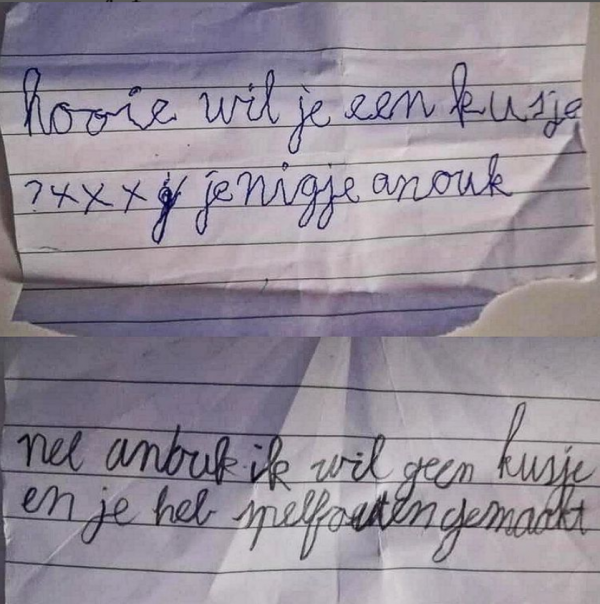 hooie wil je een kusje
? x x x je nigje anouk
nee anouk ik wil geen kusje
en je heb spelfouten gemaakt